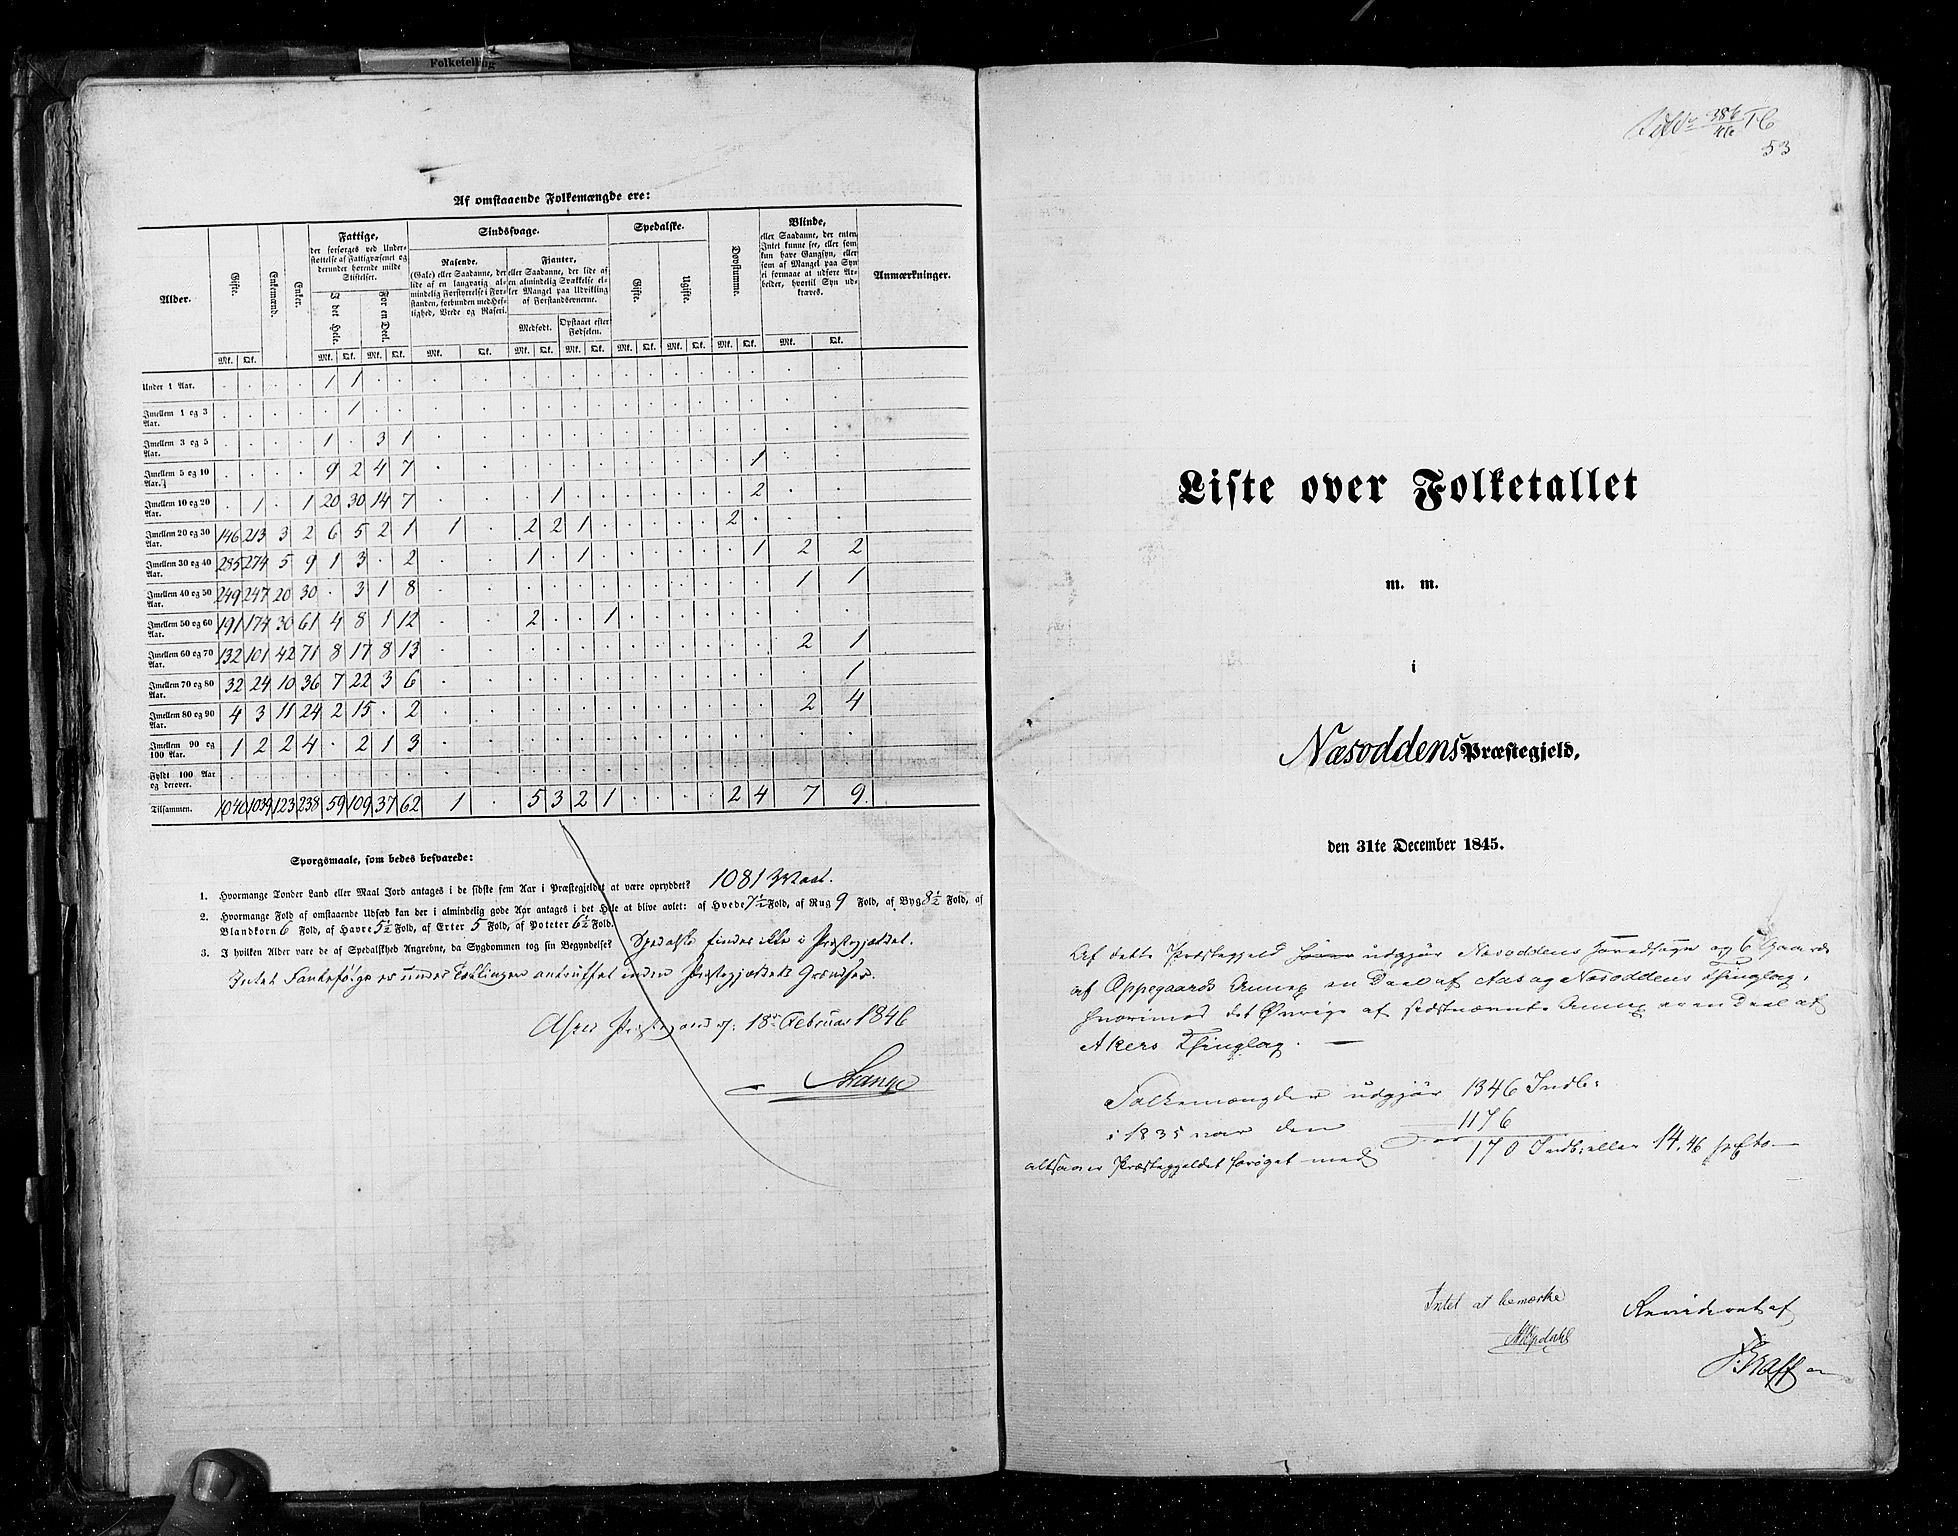 Folketelling
Af omstaaende Folkemængde ere:
Alder. Gifte. Enkemænd. Enker. Fattige, der forsørges ved Understøttelse af Fattigvæsenet og derunder hørende milde Stiftelser. Sindssvage. Spedalske. Døvstumme. Blinde, eller Saadanne, der enten Intet kunne see, eller som kun have Gangsyn, eller som af Mangel paa Syn ei formaae at udføre Arbeider, hvortil Syn udkræves. Anmærkninger.
I det Hele. For en Deel. Rasende. (Gale) eller Saadanne, der lide af en langvarig almindelig Forstyrrelse i Forstanden, forbunden med Heftighed, Vrede og Raseri. Fianter, eller Saadanne, der lide af en almindelig Svækkelse eller Mangel paa Udvikling af Forstandsevnerne. Gifte. Ugifte.
Medfødt. Opstaaet efter Fødselen.
Mk. Qk. Mk. Qk. Mk. Qk. Mk. Qk. Mk. Qk. Mk. Qk. Mk. Qk. Mk. Qk. Mk. Qk. Mk. Qk.
Under 1 Aar. . . . . 1 1 . . . . . . . . . . . . . . . .
Imellem 1 og 3 Aar. . . . . . 1 . . . . . . . . . . . . . . . .
Imellem 3 og 5 Aar. . . . . 1 . 3 1 . . . . . . . . . . . . . .
Imellem 5 og 10 Aar. . . . . 9 2 4 7 . . . . . . . . . . . 1 . .
Imellem 10 og 20 Aar. . 1 . 1 20 30 14 7 . . . 1 . . . . . . . 2 . .
Imellem 20 og 30 Aar. 146 213 3 2 6 5 2 1 1 . 2 2 1 . . . . . 2 . . .
Imellem 30 og 40 Aar. 285 274 5 9 1 3 . 2 . . 1 . 1 . . . . . . 1 2 2
Imellem 40 og 50 Aar. 249 247 20 30 . 3 1 8 . . . . . . . . . . . . 1 1
Imellem 50 og 60 Aar. 191 174 30 61 4 8 1 12 . . 2 . . 1 . . . . . . . .
Imellem 60 og 70 Aar. 132 101 42 71 8 17 8 13 . . . . . . . . . . . . 2 1
Imellem 70 og 80 Aar. 32 24 10 36 7 22 3 6 . . . . . . . . . . . . . 1
Imellem 80 og 90 Aar. 4 3 11 24 2 15 . 2 . . . . . . . . . . . . 2 4
Imellem 90 og 100 Aar. 1 2 2 4 . 2 1 3 . . . . . . . . . . . . . .
Fyldt 100 Aar og derover. . . . . . . . . . . . . . . . . . . . . . .
Tilsammen. 1040 1039 123 238 59 109 37 62 1 . 5 3 2 1 . . . . 2 4 7 9.
Spørgsmaale, som bedes besvarede:
1. Hvormange Tønder Land eller Maal Jord antages i de sidste fem Aar i Præstegjeldet at være opryddet? 1081 Maal.
2. Hvormange Fold af omstaaende Udsæd kan der i almindelig gode Aar antages i det Hele at blive avlet: af Hvede 7½ Fold, af Rug 9 Fold, af Byg 8½ Fold, af
Blandkorn 6 Fold, af Havre 5½ Fold, af Erter 5 Fold, af Poteter 6½ Fold.
3. I hvilken Alder vare de af Spedalskhed Angrebne, da Sygdommen tog sin Begyndelse? Spedalske findes ikke i Præstegjældet.
Intet Tankefølge er under Tællingen antruffet inden Præstegjældets Grændser.
Præstegaard 18 Februar 1846
Lange
53
Liste over Folketallet
m. m.
i
Næsoddens Præstegjeld,
den 31te December 1845.
Af dette Præstegjeld udgjør Næsoddens Hovedsogn og 6 Gaarde
af Oppegaards Annex en Deel af Aas og Næsoddens Thinglag,
hvorimod det Øvrige af sidstnævnte Annex er en Deel af
Akers Thinglag. —
Folkemængden udgjør 1346 Indb:
i 1835 var den 1176
altsaa er Præstegjeldet forøget med 170 Indb: eller 14,46 pCto
Intet at bemærke
Revideret af